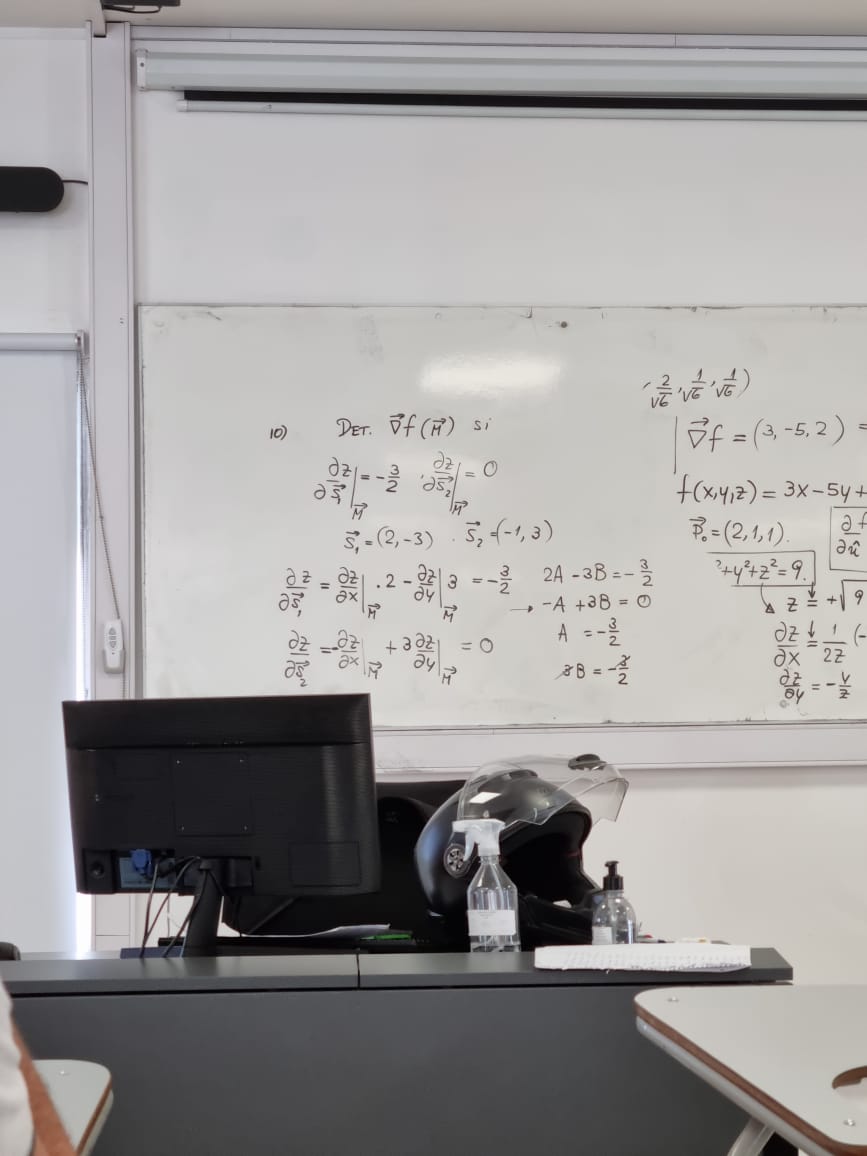 10) DET. ∇⃗f(M⃗) si
∂z/∂S⃗₁|M⃗ = -3/2 , ∂z/∂S⃗₂|M⃗ = 0
S⃗₁ = (2, -3) . S⃗₂ = (-1, 3)
∂z/∂S⃗₁ = ∂z/∂x|M⃗ . 2 - ∂z/∂y|M⃗ 3 = -3/2
∂z/∂S⃗₂ = -∂z/∂x|M⃗ + 3 ∂z/∂y|M⃗ = 0
2A - 3B = -3/2
→ -A + 3B = 0
A = -3/2
3B = -3/2
, 2/√6 , 1/√6 , 1/√6)
∇⃗f = (3, -5, 2) =
f(x,y,z) = 3x - 5y +
P⃗₀ = (2, 1, 1).
²+y²+z² = 9.
z = +√9
∂z/∂x = 1/2z (-
∂z/∂y = -y/z